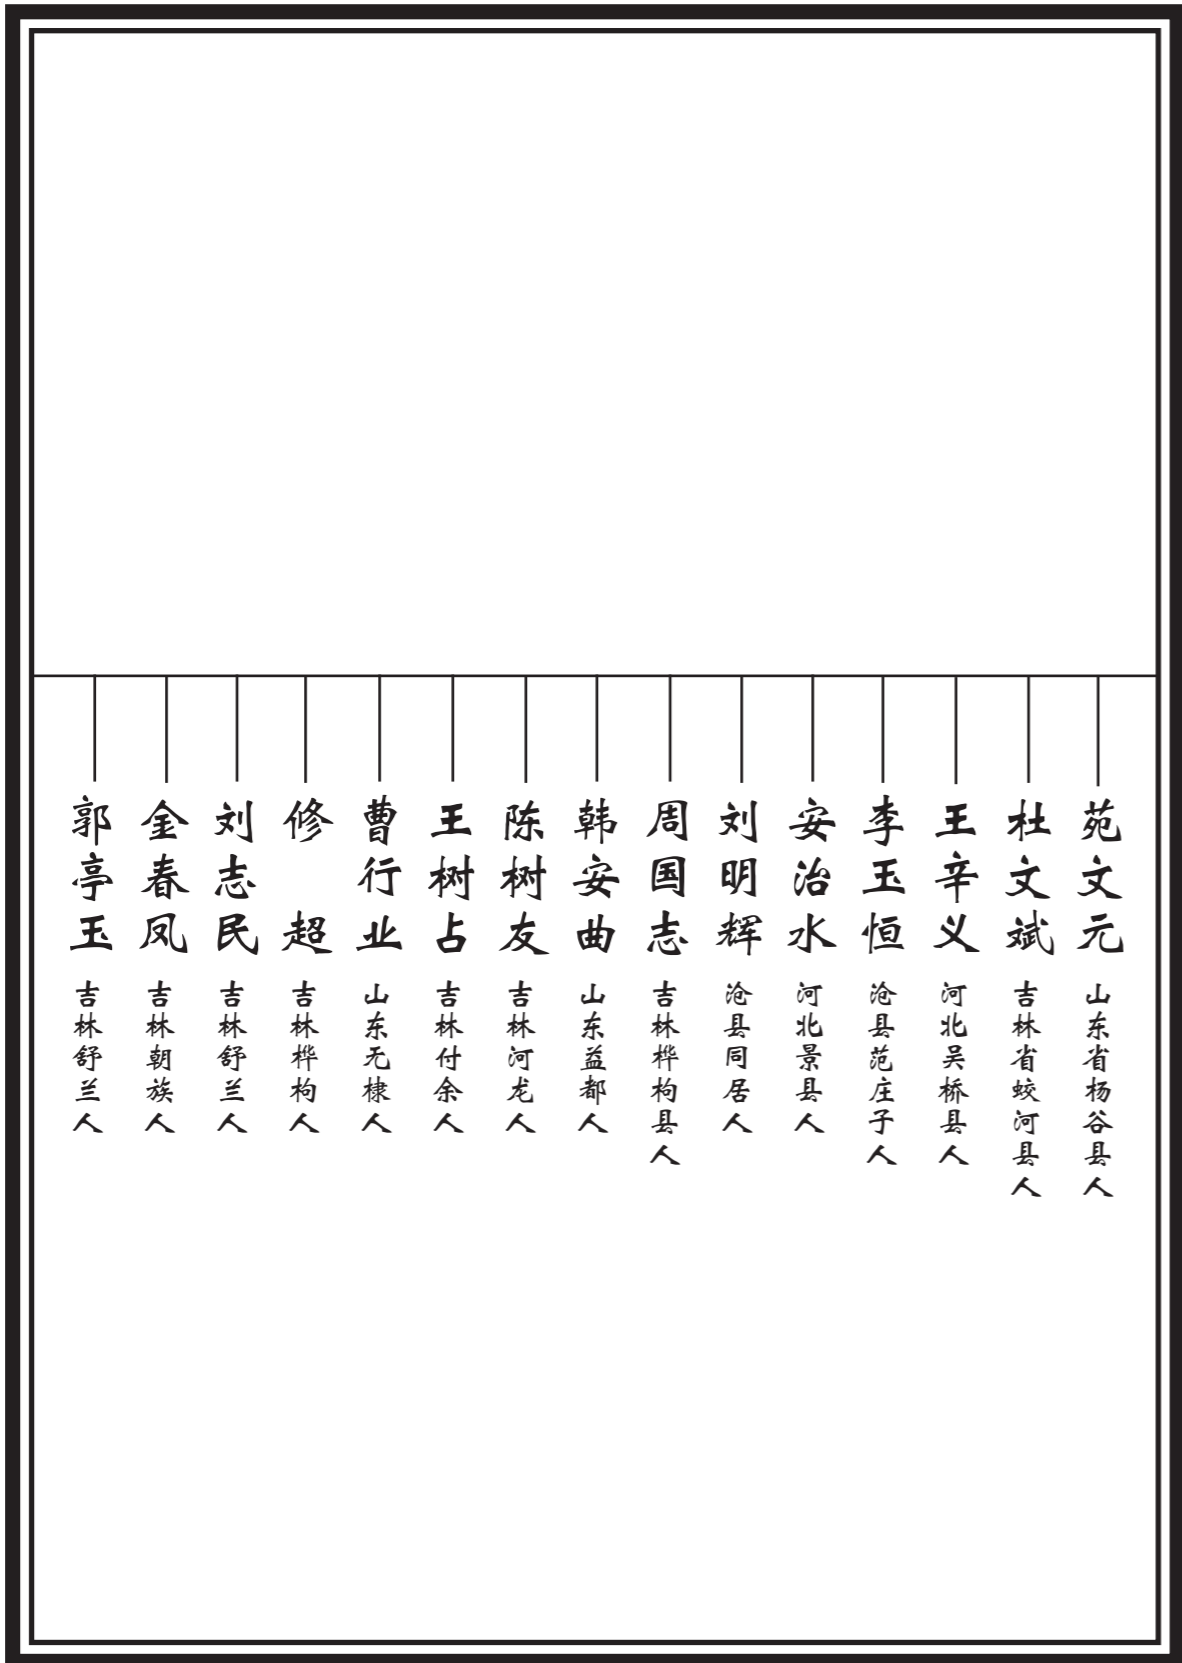 苑文元 山东省杨谷县人
杜文斌 吉林省蛟河县人
王辛义 河北吴桥县人
李玉恒 沧县范庄子人
安治水 河北景县人
刘明辉 沧县同居人
周国志 吉林桦枸县人
韩安曲 山东益都人
陈树友 吉林河龙人
王树占 吉林付余人
曹行业 山东无棣人
修超 吉林桦枸人
刘志民 吉林舒兰人
金春凤 吉林朝族人
郭亭玉 吉林舒兰人